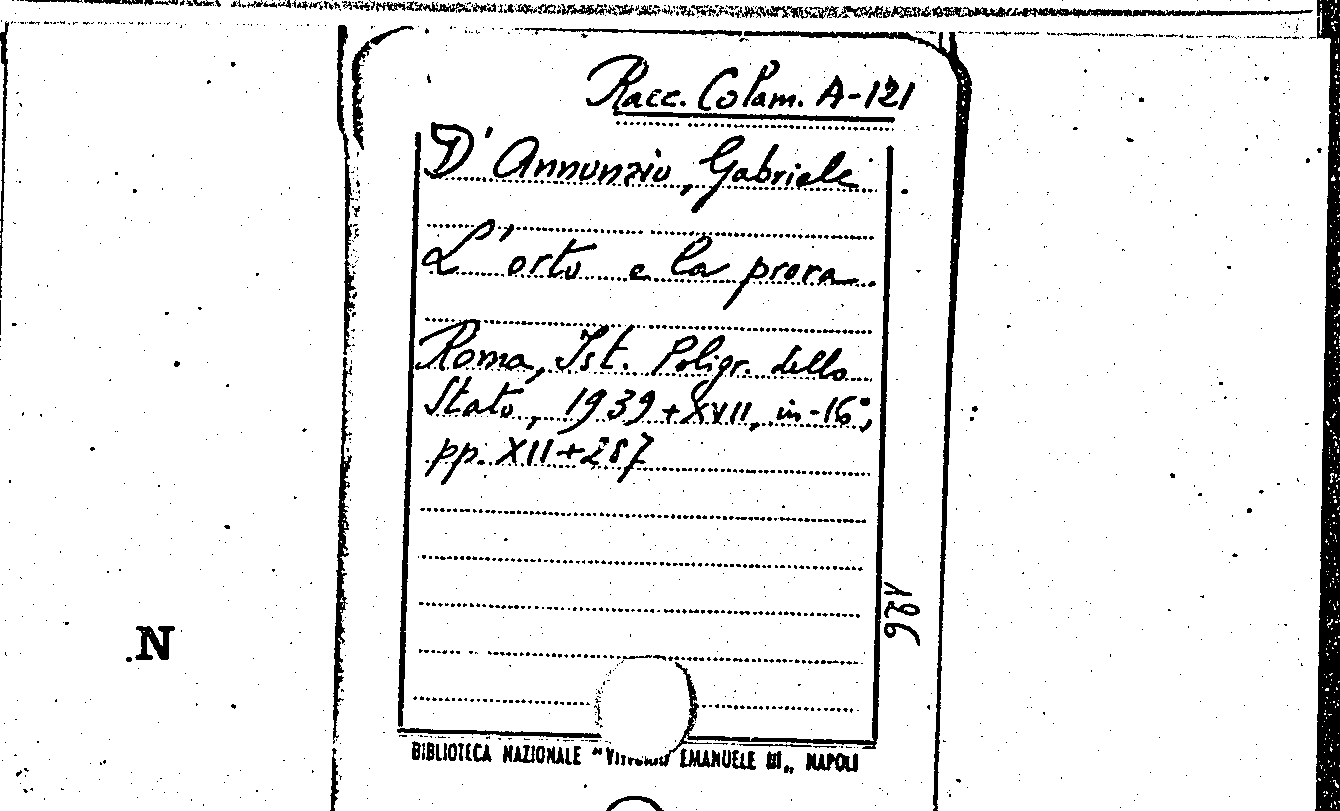 Racc. Colam. A-121
D'Annunzio, Gabriele
L'orto e la prora.
Roma, Ist. Poligr. dello
Stato, 1939 + XVII, in-16°,
pp. XII+287
136
N
BIBLIOTECA NAZIONALE "VITTORIO EMANUELE III„ NAPOLI